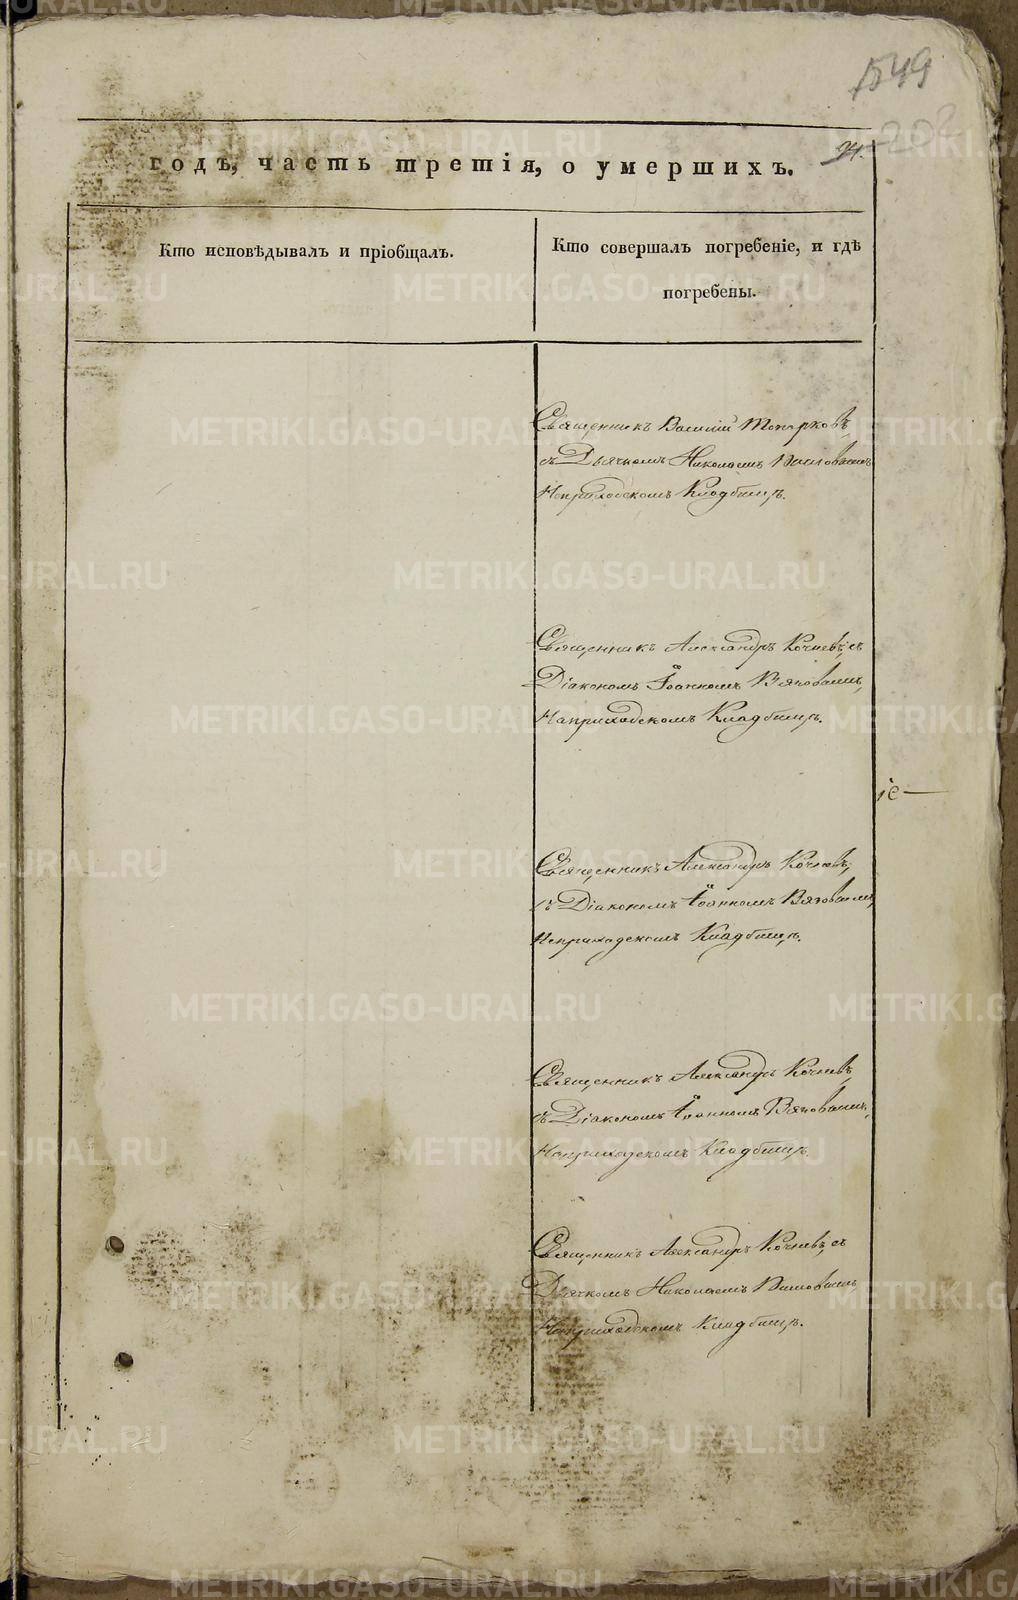 1549
202
94.
годъ, часть третія, о умершихъ.
Кто исповѣдывалъ и пріобщалъ.
Кто совершалъ погребеніе, и гдѣ
погребены.
Священникъ Василій Топорковъ,
съ Дьячкомъ Николаемъ
Наприходскомъ Кладбищѣ.
Священникъ Александръ Кочневъ, съ
Діакономъ Іоанномъ Вяткиным
Наприходскомъ Кладбищѣ.
іе
Священникъ Александръ Кочневъ,
съ Діакономъ Іоанномъ
Наприходскомъ Кладбищѣ.
Священникъ Александръ Кочневъ,
съ Діакономъ Іоанномъ
Наприходскомъ Кладбищѣ.
Священникъ Александръ Кочневъ, съ
Дьячкомъ Николаемъ
Наприходскомъ Кладбищѣ.
METRIKI.GASO-URAL.RU